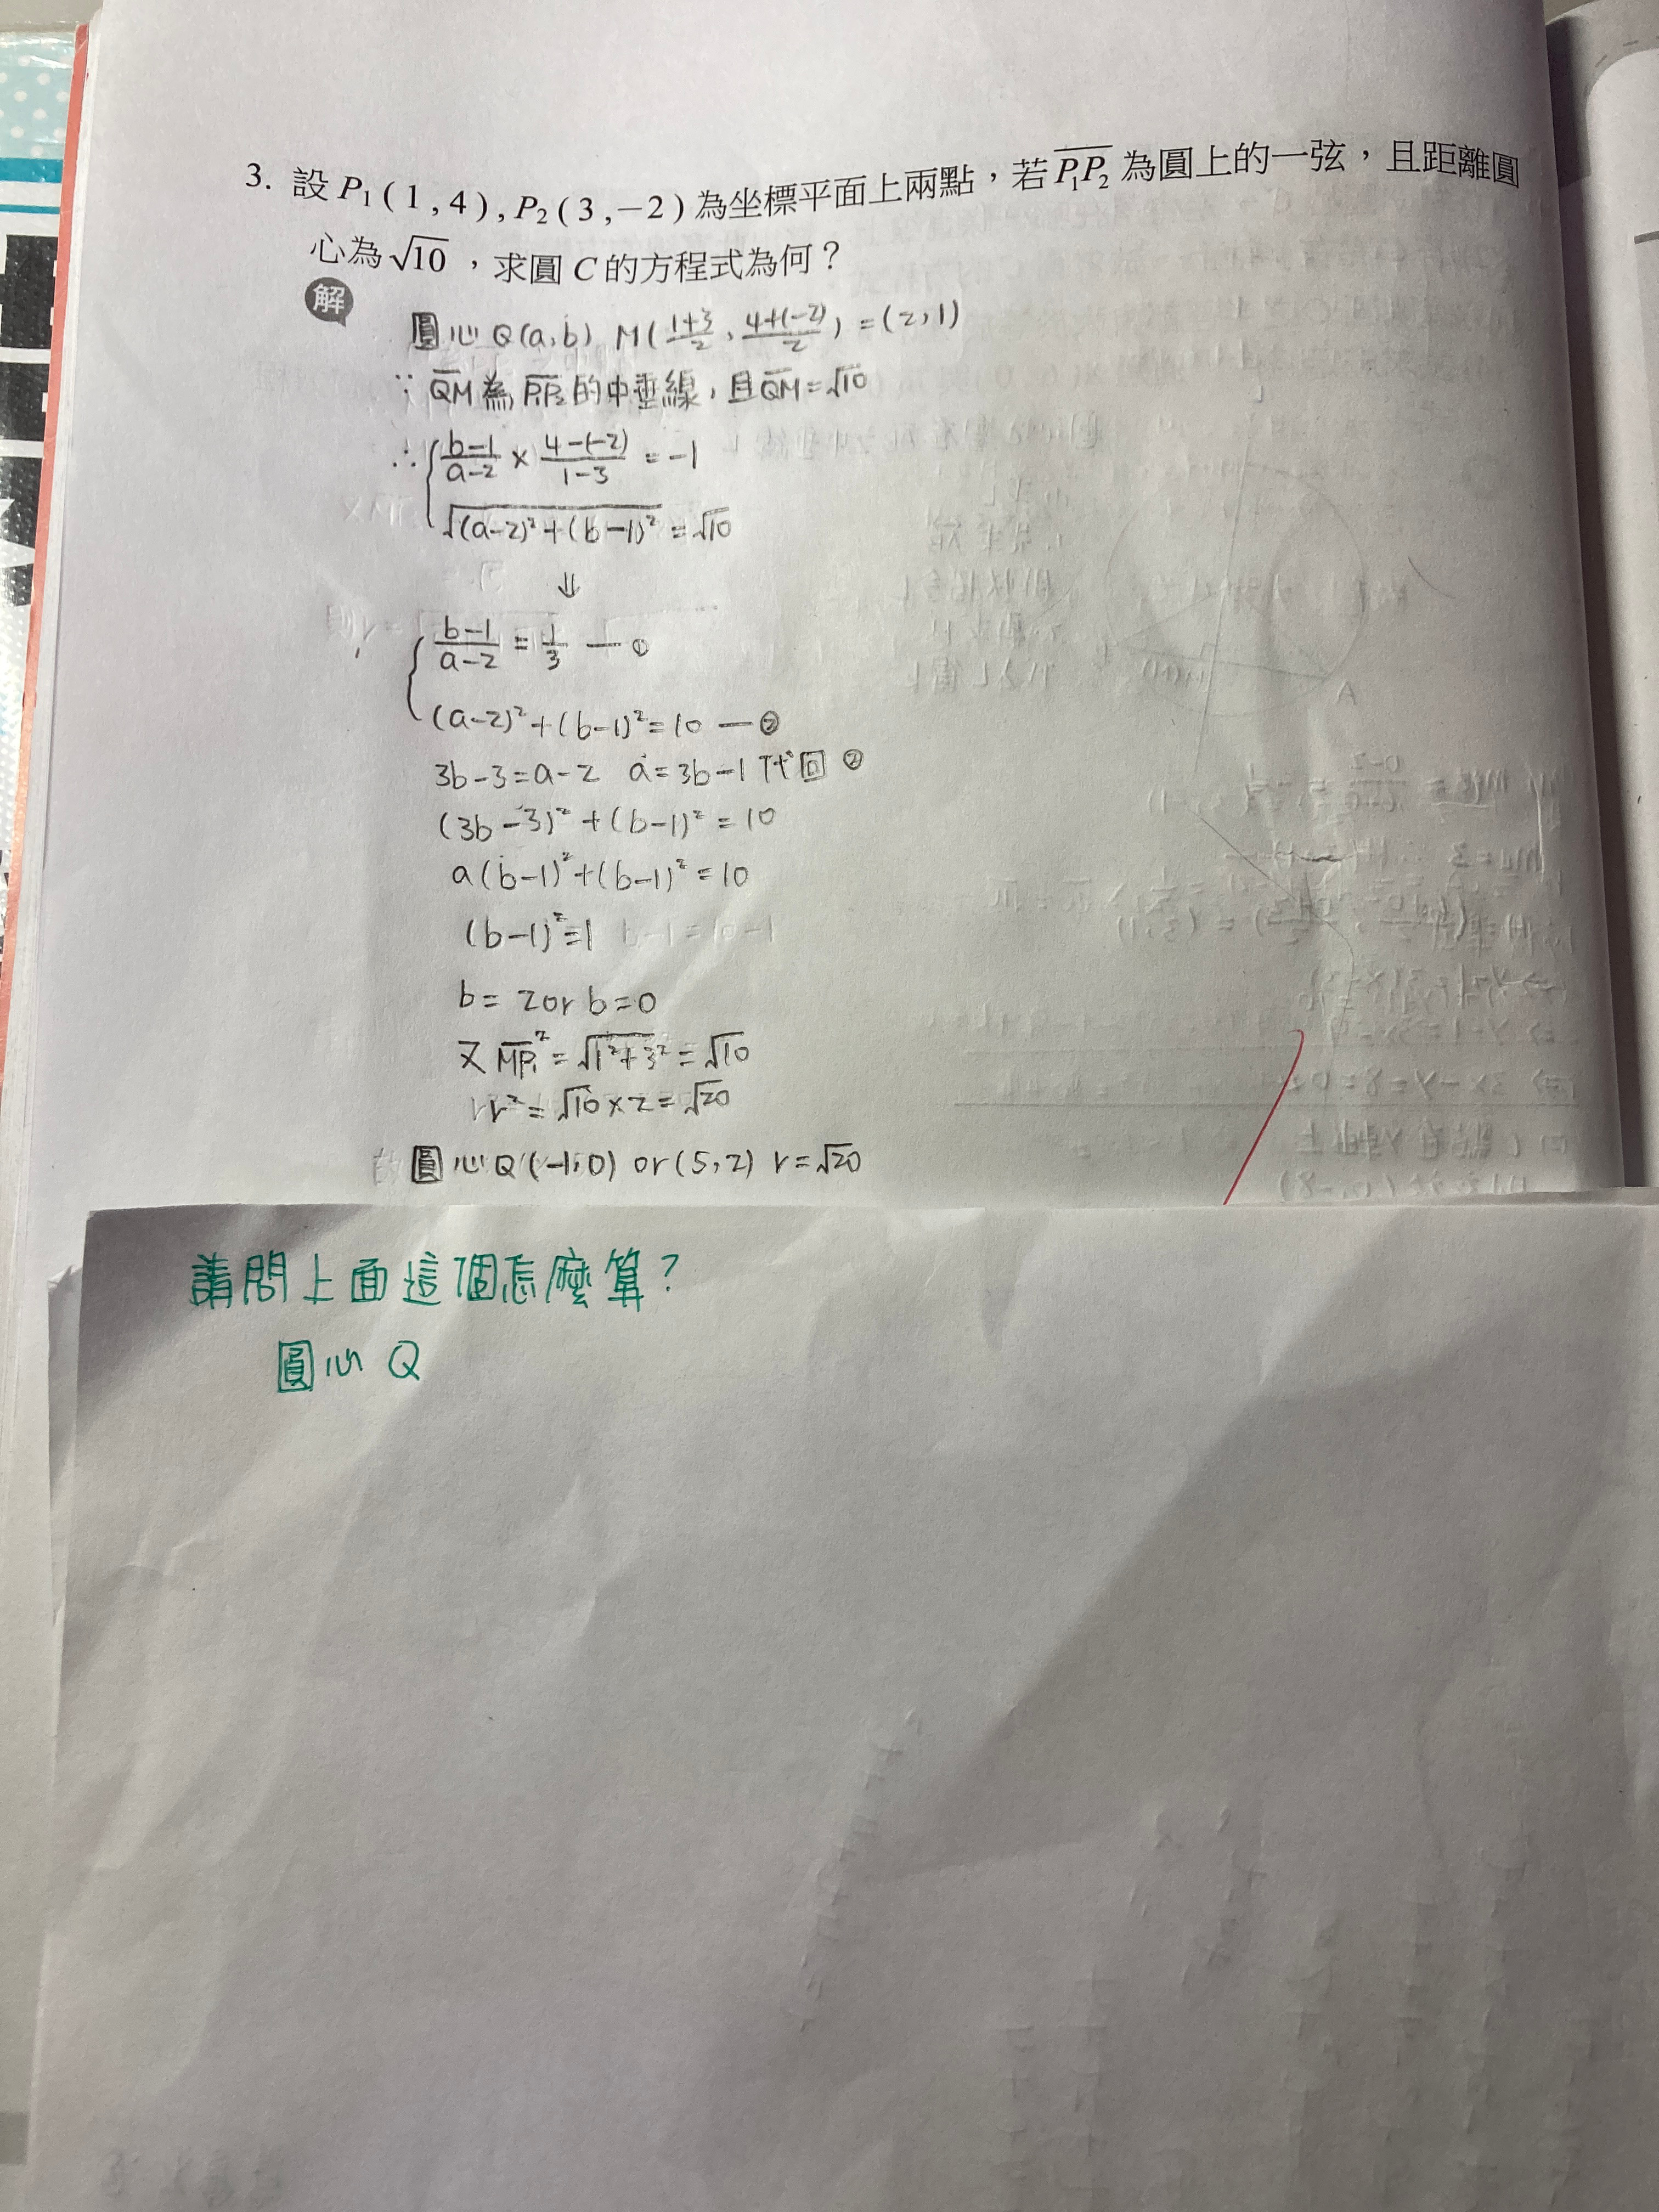 3. 設 P₁ ( 1 , 4 ) , P₂ ( 3 , −2 ) 為坐標平面上兩點，若 P₁P₂ 為圓上的一弦，且距離圓
心為 √10 ，求圓 C 的方程式為何？
解
圓心 Q(a,b) M( (1+3)/2 , (4+(-2))/2 ) = (2,1)
∵ QM 為 P₁P₂ 的中垂線，且 QM = √10
∴ { (b-1)/(a-2) × (4-(-2))/(1-3) = -1
√((a-2)²+(b-1)²) = √10
⇓
{ (b-1)/(a-2) = 1/3 — ①
(a-2)²+(b-1)² = 10 — ②
3b-3 = a-2 a = 3b-1 代回 ②
(3b-3)² + (b-1)² = 10
a(b-1)²+(b-1)² = 10
(b-1)² = 1
b = 2 or b = 0
又 MP₁² = √(1²+3²) = √10
r² = √10 × 2 = √20
圓心 Q (-1,0) or (5,2) r = √20
請問上面這個怎麼算？
圓心 Q